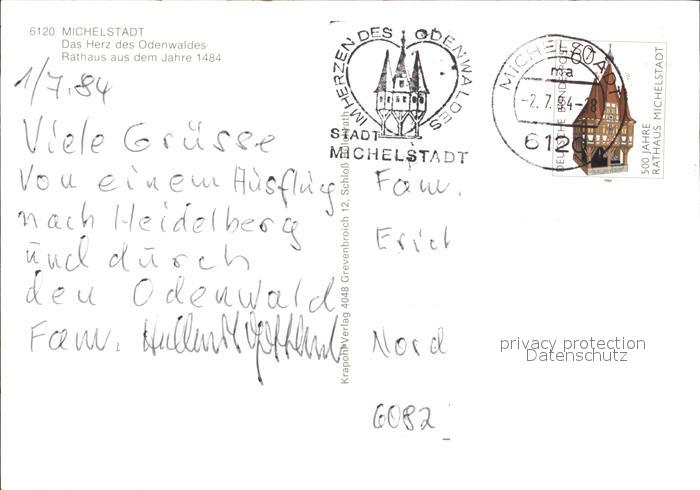 6120 MICHELSTADT
Das Herz des Odenwaldes
Rathaus aus dem Jahre 1484
1/7.84
Viele Grüsse
von einem Ausflug
nach Heidelberg
und durch
den Odenwald
Fam.
Krapohl-Verlag 4048 Grevenbroich 12, Schloß
IM HERZEN DES ODENWALDES
STADT
MICHELSTADT
MICHELSTADT
ma
-2.7.84-
6120
DEUTSCHE BUNDESPOST
60
500 JAHRE
RATHAUS MICHELSTADT
1984
Fam.
Erich
Nord
6082
privacy protection
Datenschutz